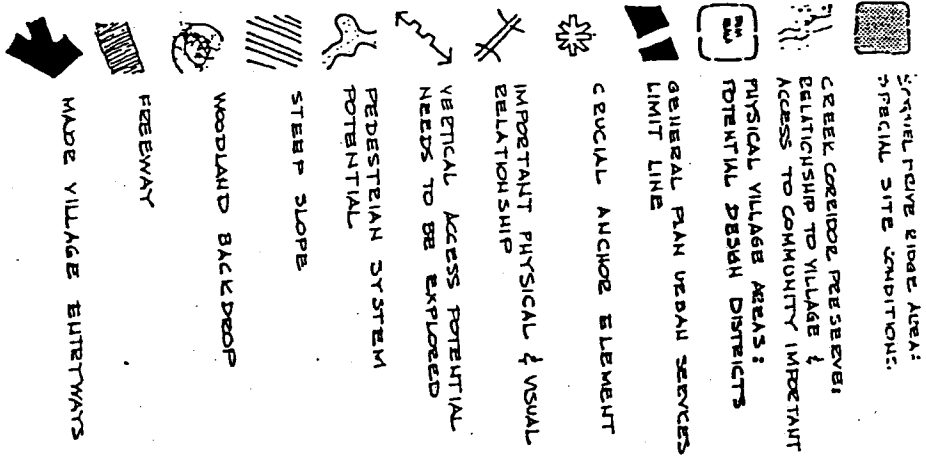 RIDGE AREA:
SPECIAL SITE CONDITIONS.
CREEK CORRIDOR PRESERVE:
RELATIONSHIP TO VILLAGE &
ACCESS TO COMMUNITY IMPORTANT
PHYSICAL VILLAGE AREAS:
POTENTIAL DESIGN DISTRICTS
GENERAL PLAN URBAN SERVICES
LIMIT LINE
CRUCIAL ANCHOR ELEMENT
IMPORTANT PHYSICAL & VISUAL
RELATIONSHIP
VERTICAL ACCESS POTENTIAL
NEEDS TO BE EXPLORED
PEDESTRIAN SYSTEM
POTENTIAL
STEEP SLOPE
WOODLAND BACKDROP
FREEWAY
MAJOR VILLAGE ENTRYWAYS